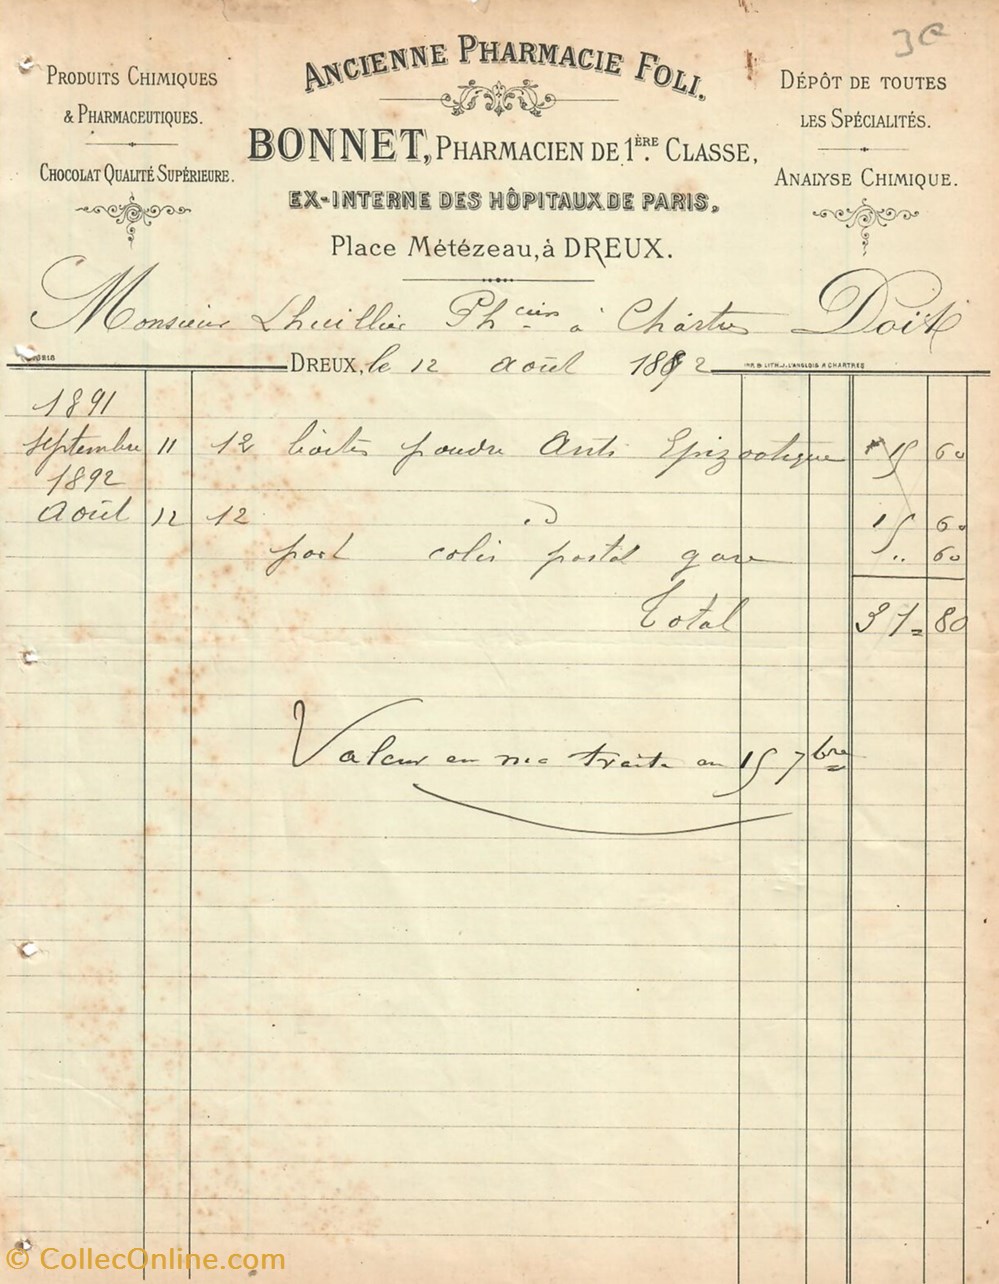 3e
ANCIENNE PHARMACIE FOLI.
PRODUITS CHIMIQUES
& PHARMACEUTIQUES.
CHOCOLAT QUALITÉ SUPÉRIEURE.
DÉPÔT DE TOUTES
LES SPÉCIALITÉS.
ANALYSE CHIMIQUE.
BONNET, PHARMACIEN DE 1ÈRE. CLASSE,
EX-INTERNE DES HÔPITAUX DE PARIS,
Place Métézeau, à DREUX.
Monsieur Lhuillier Phcien à Chartres Doit
DREUX, le 12 août 1892
IMP. & LITH. J. L'ANGLOIS A CHARTRES
1891
Septembre 11 12 boîtes poudre Anti Epizootique 15 60
1892
Août 12 12 d 15 60
port colis postal gare .. 60
Total 31 = 80
Valeur en ma traite au 15 7bre
© CollecOnline.com